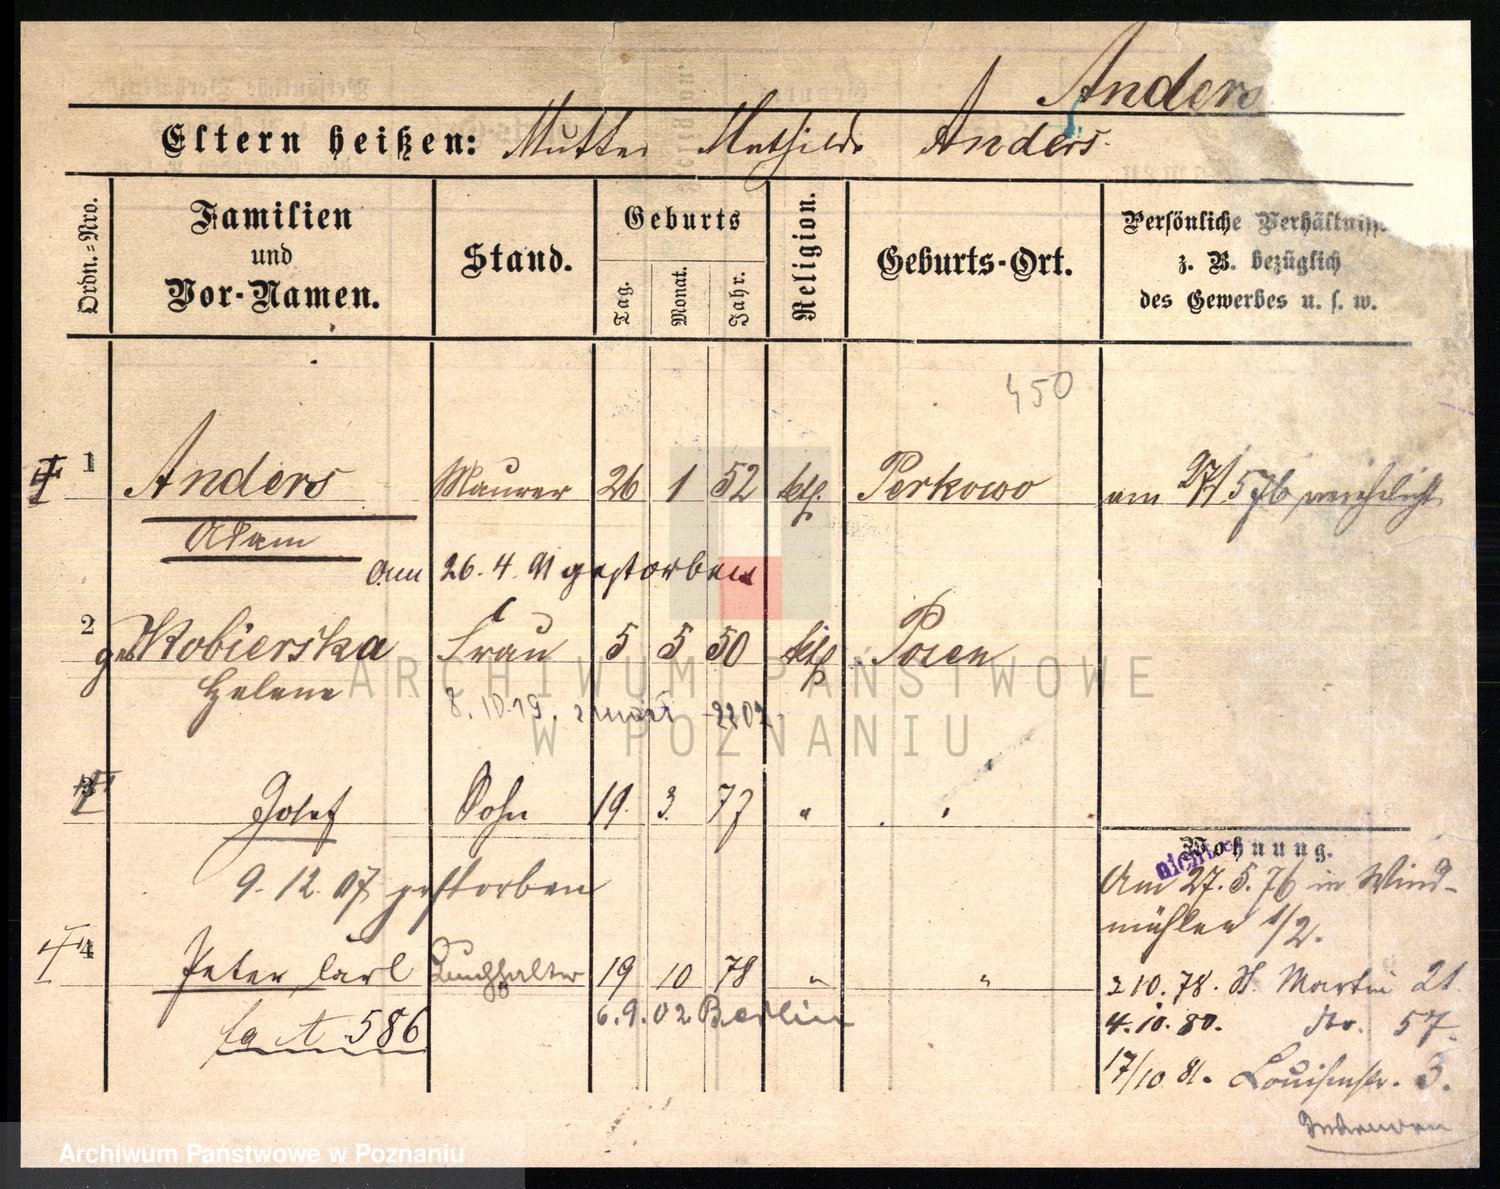 Anders
Eltern heißen: Mutter Mathilde Anders.
Ordn.=Nro.
Familien
und
Vor-Namen.
Stand.
Geburts
Tag.
Monat.
Jahr.
Religion.
Geburts-Ort.
Persönliche Verhältniss
z. B. bezüglich
des Gewerbes u. s. w.
450
1 Anders Maurer 26 1 52 kth. Perkowo am 27/5 76 verehelicht
Adam
am 26. 4. 91 gestorben
2 geb Skobierska Frau 5 5 50 kth. Posen
Helene
8.10.19. 2202
3 Josef Sohn 19. 3. 77 " "
9. 12. 07 gestorben
4 Peter Carl Buchhalter 19 10 78 " "
fa A 586
6.9.02 Berlin
Wohnung.
Am 27. 5. 76 in Wind-
mühlen 1/2.
2 10. 78. St. Martin 21.
4. 10. 80. do. 57.
17/10 81. Louisenstr. 3.
ARCHIWUM PAŃSTWOWE
W POZNANIU
Archiwum Państwowe w Poznaniu